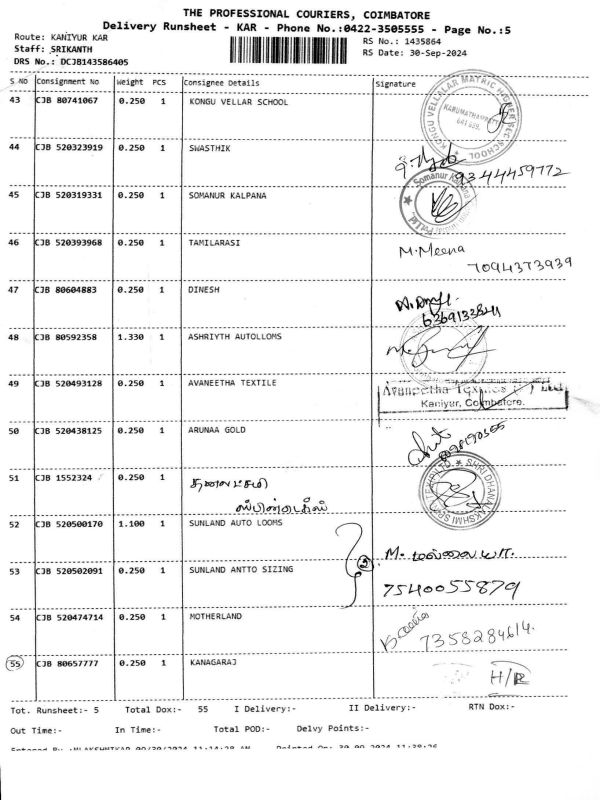 THE PROFESSIONAL COURIERS, COIMBATORE
Delivery Runsheet - KAR - Phone No.:0422-3505555 - Page No.:5
Route: KANIYUR KAR
Staff: SRIKANTH
DRS No.: DCJB143586405
RS No.: 1435864
RS Date: 30-Sep-2024
S NO Consignment No Weight PCS Consignee Details Signature
43 CJB 80741067 0.250 1 KONGU VELLAR SCHOOL
KONGU VELLALAR MATRIC HIGHER SEC SCHOOL
KARUMATHAMPATTI
641 659
44 CJB 520323919 0.250 1 SWASTHIK
9344459772
45 CJB 520319331 0.250 1 SOMANUR KALPANA
Somanur Kalpana
46 CJB 520393968 0.250 1 TAMILARASI
M. Meena
7094373939
47 CJB 80604883 0.250 1 DINESH
6369133841
48 CJB 80592358 1.330 1 ASHRIYTH AUTOLLOMS
49 CJB 520493128 0.250 1 AVANEETHA TEXTILE
Avaneetha Textiles (P) Ltd
Kaniyur, Coimbatore.
50 CJB 520438125 0.250 1 ARUNAA GOLD
51 CJB 1552324 0.250 1
SHRI DHANALAKSHMI SPINTEX
52 CJB 520500170 1.100 1 SUNLAND AUTO LOOMS
M.
53 CJB 520502091 0.250 1 SUNLAND ANTTO SIZING
2
7540055879
54 CJB 520474714 0.250 1 MOTHERLAND
7358284614
55 CJB 80657777 0.250 1 KANAGARAJ
H/R
Tot. Runsheet:- 5 Total Dox:- 55 I Delivery:- II Delivery:- RTN Dox:-
Out Time:- In Time:- Total POD:- Delvy Points:-